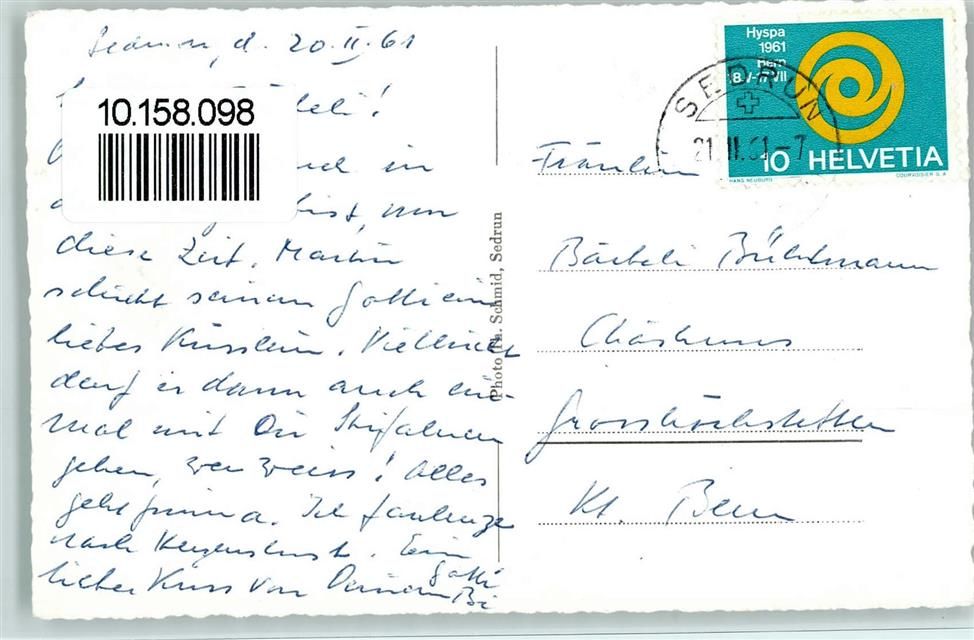 Sedrun, d. 20.II.61
10.158.098
in
diese Zeit. Martin
schickt seinem Gotti ein
liebes Küsslein. Vielleicht
darf er dann auch ein-
mal mit Dir Skifahren
gehen, wer weiss! Alles
geht prima. Ich faulenze
nach Herzenslust. Ein
lieber Kuss von Deinem Gotti
Photo Th. Schmid, Sedrun
Hyspa
1961
Bern
18.V-17.VII
10 HELVETIA
HANS NEUBURG
COURVOISIER S.A.
SEDRUN
21.II.61-7
Fräulein
Bärbeli Bühlmann
Chäshus
Grosshöchstetten
Kt. Bern